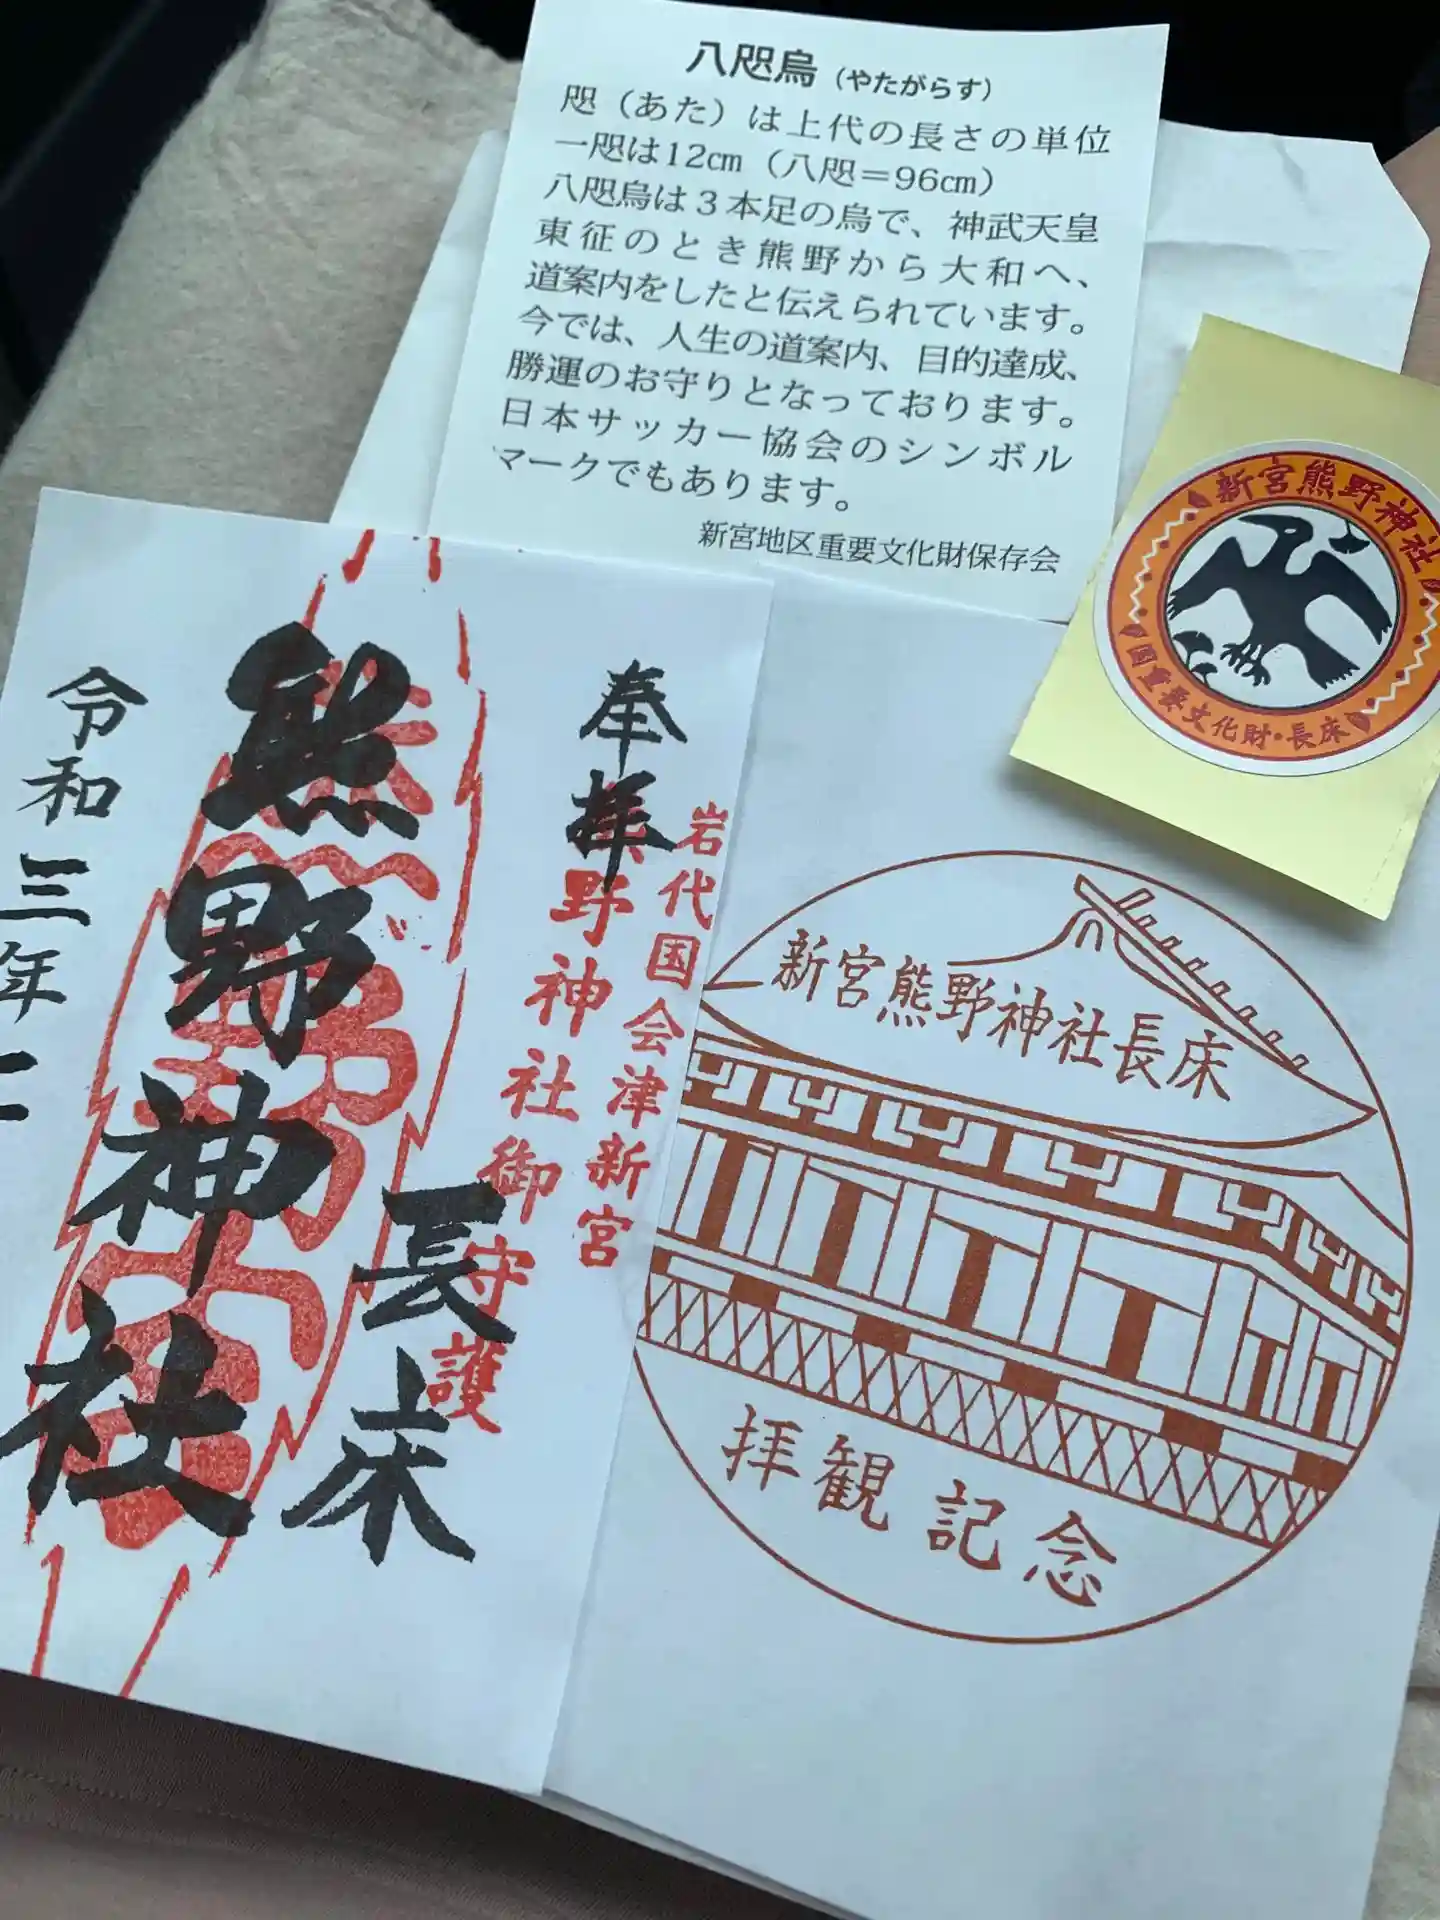 八咫烏（やたがらす）
咫（あた）は上代の長さの単位
一咫は12㎝（八咫＝96㎝）
八咫烏は３本足の烏で、神武天皇
東征のとき熊野から大和へ、
道案内をしたと伝えられています。
今では、人生の道案内、目的達成、
勝運のお守りとなっております。
日本サッカー協会のシンボル
マークでもあります。
新宮地区重要文化財保存会
新宮熊野神社
国重要文化財・長床
奉拝
岩代国会津新宮
熊野神社御守護
長床
熊野神社
令和三年二
新宮熊野神社長床
拝観記念